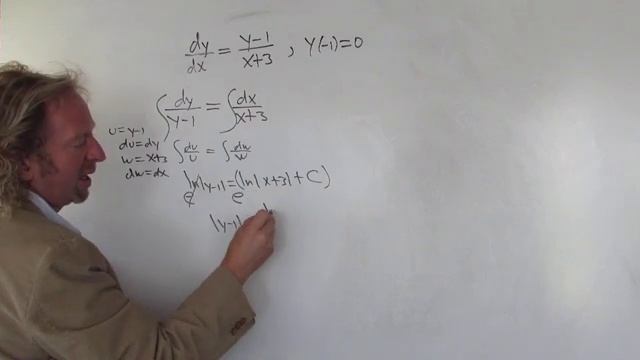 dy/dx = y-1/x+3 , y(-1)=0
∫ dy/y-1 = ∫ dx/x+3
u=y-1
du=dy
w=x+3
dw=dx
∫ du/u = ∫ dw/w
e^ln|y-1| = e^(ln|x+3|+C)
|y-1|